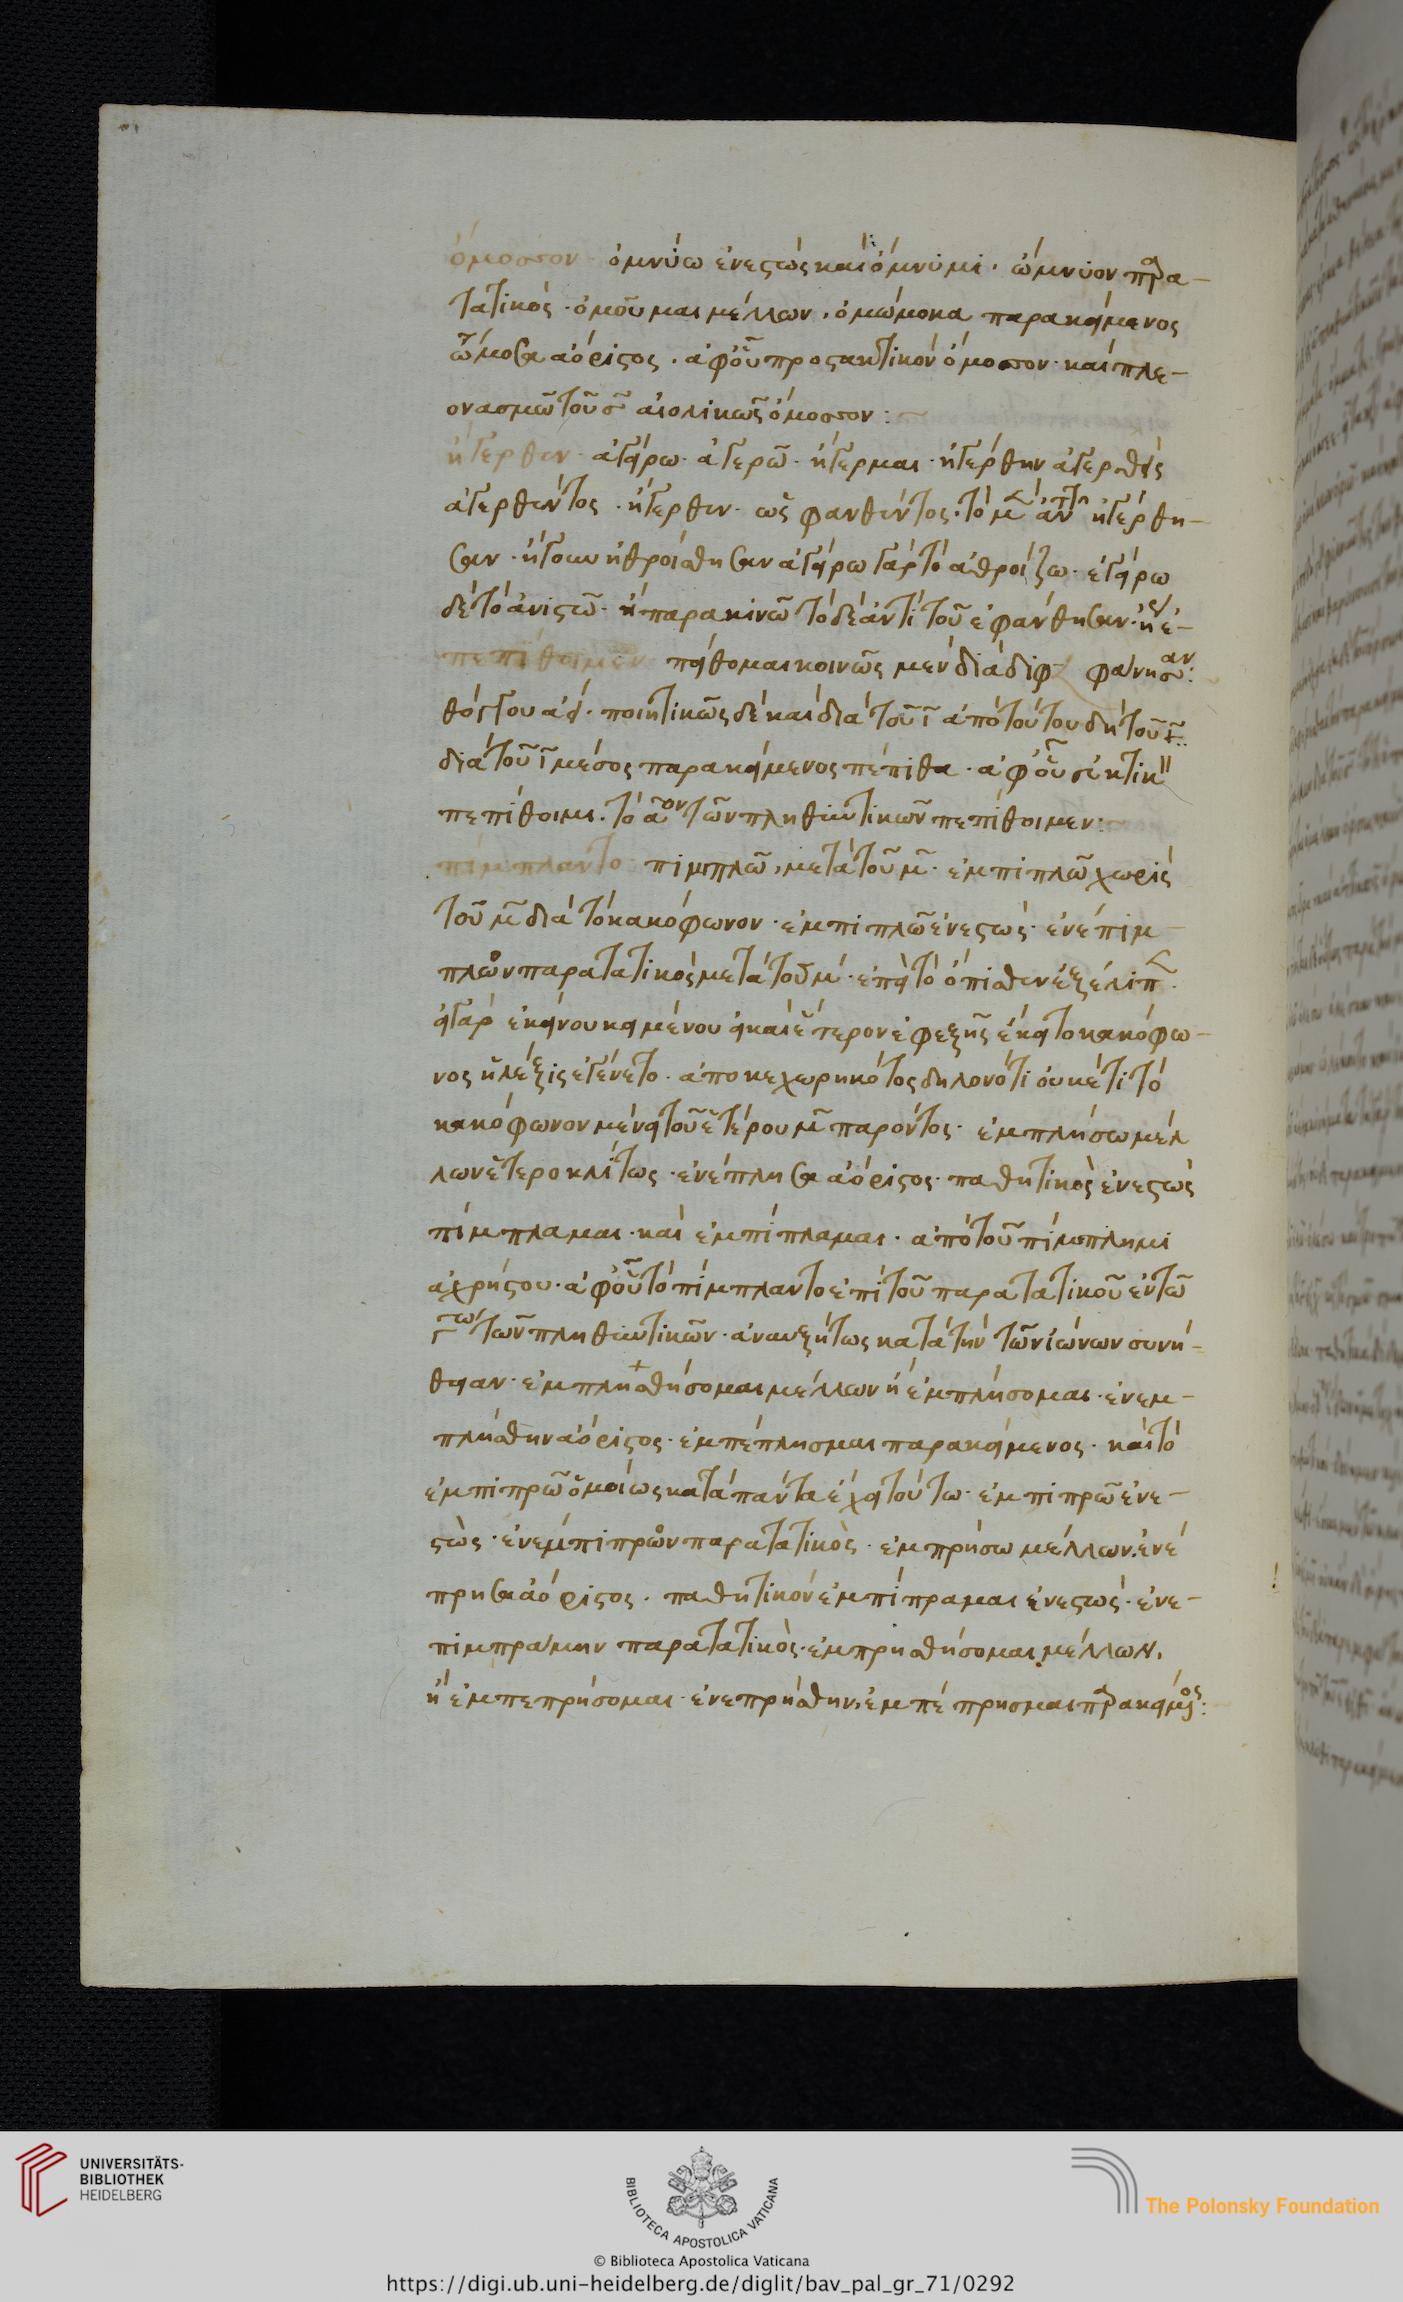 ὄμοσσον· ὀμνύω ἐνεστὼς καὶ ὄμνυμι· ὤμνυον παρα-
τατικὸς· ὀμοῦμαι μέλλων· ὀμώμοκα παρακείμενος
ὤμοσα ἀόριστος· ἀφ' οὗ προστακτικὸν ὄμοσον· καὶ πλε-
ονασμῶ τοῦ σ αἰολικῶς ὄμοσσον:
ἤγερθεν· ἀγείρω· ἀγερῶ· ἤγερμαι· ἠγέρθην ἀγερθεὶς
ἀγερθέντος· ἤγερθεν· ὡς φανθέντος· τὸ μ ἀντ ἠγέρθη-
σαν· ἤγουν ἠθροίσθησαν ἀγείρω γὰρ τὸ ἀθροίζω· ἐγείρω
δὲ τὸ ἀνιστῶ· ἢ παρακινῶ τὸ δὲ ἀντὶ τοῦ ἐφάνθησαν· ἢ ἐ-
πεπίθοιμεν πείθομαι κοινῶς μὲν διὰ διφ φάνησαν:
θόγγου δὲ καὶ διὰ τοῦ ι ἀπὸ τούτου δὴ τοῦ
διὰ τοῦ ι μέσος παρακείμενος πέπιθα· ἀφ' οὗ εὐκτικ
πεπίθοιμι· τὸ α ον τῶν πληθυντικῶν πεπίθοιμεν:
πίμπλαντο πιμπλῶ, μετὰ τοῦ μ· ἐμπιπλῶ χωρὶς
τοῦ μ διὰ τὸ κακόφωνον· ἐμπιπλῶ ἐνεστὼς· ἐνεπίμ-
πλων παρατατικὸς μετὰ τοῦ μ· ἐπεὶ τὸ ὄπισθεν ἐξέλιπ
εἰ γὰρ ἐκείνου κειμένου εἰ καὶ ἕτερον ἐφεξῆς ἔκειτο κακόφω-
νος ἡ λέξις ἐγένετο· ἀποκεχωρηκότος δηλονότι οὐκέτι τὸ
κακόφωνον μένει τοῦ ἑτέρου μ παρόντος· ἐμπλήσω μέλ
λων ἑτεροκλίτως· ἐνέπλησα ἀόριστος· παθητικὸς ἐνεστὼς
πίμπλαμαι· καὶ ἐμπίπλαμαι· ἀπὸ τοῦ πίμπλημι
ἀχρήστου· ἀφ' οὗ τὸ πίμπλαντο ἐπὶ τοῦ παρατατικοῦ ἐν τῶ
γω τῶν πληθυντικῶν· ἀναυξήτως κατὰ τὴν τῶν ἰώνων συνή-
θειαν· ἐμπλησθήσομαι μέλλων ἢ ἐμπλήσομαι· ἐνεμ-
πλήσθην ἀόριστος· ἐμπέπλησμαι παρακείμενος· καὶ τὸ
ἐμπιπρῶ ὁμοίως κατὰ πάντα ἔχει τούτω· ἐμπιπρῶ ἐνε-
στὼς· ἐνεμπίπρων παρατατικὸς· ἐμπρήσω μέλλων· ἐνέ
πρησα ἀόριστος· παθητικὸν ἐμπίπραμαι ἐνεστὼς· ἐνε-
πιμπράμην παρατατικὸς· ἐμπρησθήσομαι μέλλων,
ἢ ἐμπεπρήσομαι· ἐνεπρήσθην, ἐμπέπρησμαι παρακείμενος:
UNIVERSITÄTS-
BIBLIOTHEK
HEIDELBERG
BIBLIOTECA APOSTOLICA VATICANA
The Polonsky Foundation
© Biblioteca Apostolica Vaticana
https://digi.ub.uni-heidelberg.de/diglit/bav_pal_gr_71/0292